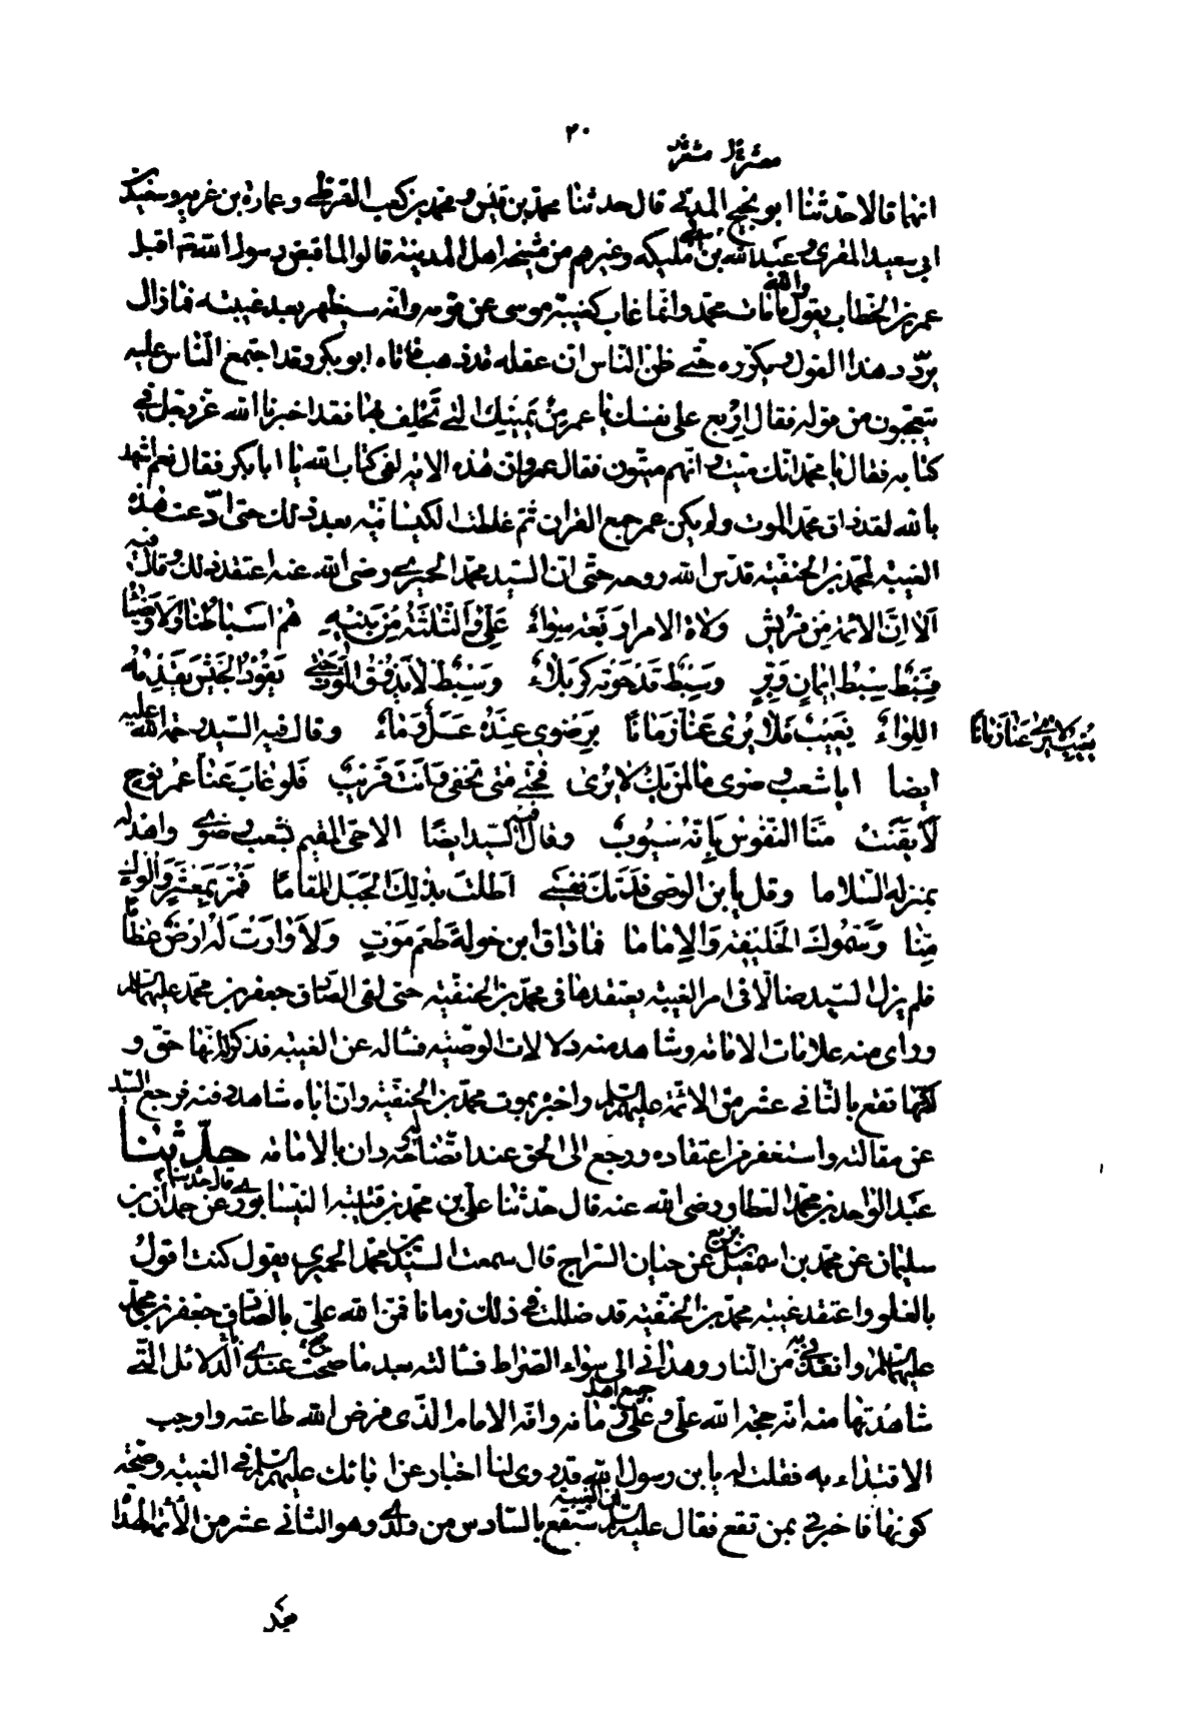 ٢٠
انهما قالا حدثنا ابو نجيح المدني قال حدثنا محمد بن قيس و محمد بن كعب القرظي و عمارة بن غزية و سعيد بن
ابى سعيد المقرى و عبد الله بن ابى مليكه و غيرهم من مشيخة اهل المدينة قالوا لما قبض رسول الله ص اقبل
عمر بن الخطاب يقول والله ما مات محمد و انما غاب كغيبة موسى عن قومه و انه سيظهر بعد غيبته فما زال
يردد هذا القول و يكرره حتى ظن الناس ان عقله قد ذهب فاتاه ابو بكر و قد اجتمع الناس عليه
يتعجبون من قوله فقال اربع على نفسك يا عمر من يمينك التى تحلف بها فقد اخبرنا الله عز و جل فى
كتابه فقال يا محمد انك ميت و انهم ميتون فقال عمر و ان هذه الاية لفى كتاب الله يا ابا بكر فقال نعم اشهد
بالله لقد ذاق محمد الموت و لم يكن عمر جمع القران ثم غلطت الكيسانية بعد ذلك حتى ادعت هذه
الغيبة لمحمد بن الحنفية قدس الله روحه حتى ان السيد محمد الحميرى رضى الله عنه اعتقد ذلك و قال فيه
الا ان الائمة من قريش ولاة الامر اربعة سواء على و الثلثة من بنيه هم اسباطنا و الاوصياء
فسبط سبط ايمان و بر و سبط قد حوته كربلاء و سبط لا يذوق الموت حتى يقود الجيش يقدمه
اللواء يغيب فلا يرى عنا زمانا برضوى عنده عسل و ماء و قال فيه السيد رحمة الله عليه
يغيب لا يرى عنا زمانا
ايضا ايا شعب رضوى ما لمن بك لا يرى فحتى متى تخفى و انت قريب فلو غاب عنا عمر نوح
لايقنت منا النفوس بانه سيؤوب و قال السيد ايضا الا حى المقيم بشعب رضوى و اهد له
بمنزله السلاما و قل يا بن الوصى فدتك نفسى اطلت بذلك الجبل المقاما فمر بمعشر و الوك
منا و سموك الخليفة و الاماما فما ذاق ابن خولة طعم موت و لا وارت له ارض عظاما
فلم يزل السيد ضالا فى امر الغيبة يعتقدها فى محمد بن الحنفية حتى لقى الصادق جعفر بن محمد عليهما السلم
و راى منه علامات الامامة و شاهد منه دلالات الوصية فساله عن الغيبة فذكر له انها حق و
لكنها تقع بالثانى عشر من الائمة عليهم السلم و اخبره بموت محمد بن الحنفية و ان اباه شاهد دفنه فرجع السيد
عن مقالته و استغفر من اعتقاده و رجع الى الحق عند اتضاحه له و دان بالامامة حدثنا
عبد الواحد بن محمد العطار رضى الله عنه قال حدثنا على بن محمد بن قتيبة النيسابورى قال حدثنا عن حمدان بن
سليمان عن محمد بن اسمعيل بن بزيع عن حيان السراج قال سمعت السيد بن محمد الحميرى يقول كنت اقول
بالغلو و اعتقد غيبة محمد بن الحنفية قد ضللت فى ذلك زمانا فمن الله على بالصادق جعفر بن محمد
عليهما السلم و انقذنى به من النار و هدانى الى سواء الصراط فسالته بعد ما صح عندى بالدلائل التى
شاهدتها منه انه حجة الله على و على جميع اهل زمانه و انه الامام الذى فرض الله طاعته و اوجب
الاقتداء به فقلت له يا بن رسول الله قد روى لنا اخبار عن ابائك عليهم السلم فى الغيبة و صحة
كونها فاخبرنى بمن تقع فقال عليه السلم ان الغيبة ستقع بالسادس من ولدى و هو الثانى عشر من الائمة الهداة